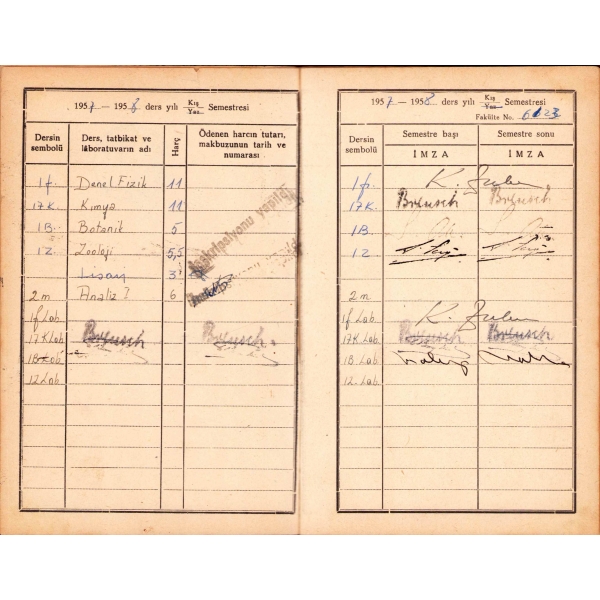 1957 — 1958 ders yılı Kış/Yaz Semestresi
Dersin sembolü
Ders, tatbikat ve lâboratuvarın adı
Harç
Ödenen harcın tutarı, makbuzunun tarih ve numarası
1f. Denel Fizik 11
17K. Kimya 11
1B Botanik 5
1Z Zooloji 5,5
Lisan 3
2m Analiz I 6
1f Lab.
17K Lab. Breusch Breusch
1B Lab
12 Lab
1957 — 1958 ders yılı Kış/Yaz Semestresi
Fakülte No.
Dersin sembolü
Semestre başı
Semestre sonu
İMZA
İMZA
1f.
17K. Breusch Breusch
1B
1Z
2m
1f Lab.
17K Lab. Breusch Breusch
1B Lab
12 Lab